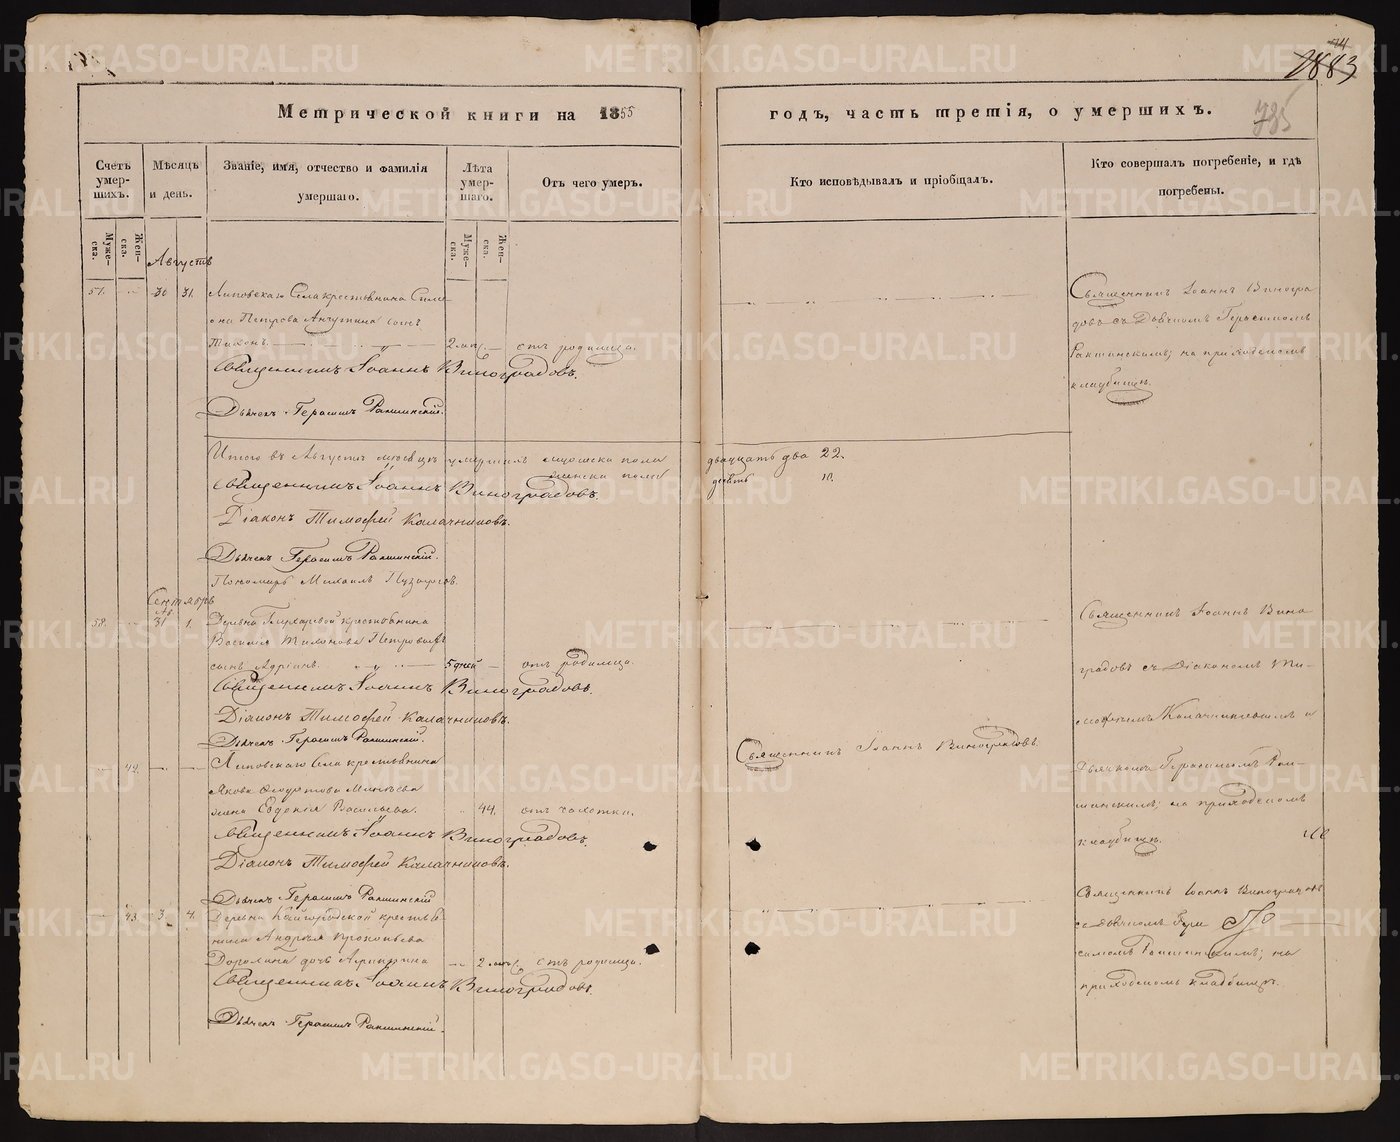 Метрической книги на 1855
годъ, часть третія, о умершихъ.
1883
785
Счетъ умер-шихъ.
Мѣсяцъ и день.
Званіе, имя, отчество и фамилія умершаго.
Лѣта умер-шаго.
Отъ чего умеръ.
Кто исповѣдывалъ и пріобщалъ.
Кто совершалъ погребеніе, и гдѣ погребены.
Муже-ска.
Жен-ска.
Муже-ска.
Жен-ска.
Августъ
57. 30 31. Липовскаго Села крестьянина Симе-
она Петрова сынъ
Тихонъ. 2 мѣс. отъ родимца.
Священникъ Іоаннъ Виноградовъ.
Дьячекъ Герасимъ Ракшинскій.
Священникъ Іоаннъ Виногра
довъ съ Дьячкомъ Герасимомъ
Ракшинскимъ; на приходскомъ
кладбищѣ.
Итого въ Августѣ мѣсяцѣ умершихъ мужеска пола двадцать два 22.
женска пола 10.
Священникъ Іоаннъ Виноградовъ.
Діаконъ Тимофей Калачниковъ.
Дьячекъ Герасимъ Ракшинскій.
Пономарь Михаилъ
Сентябрь
58. 31 1. Деревни крестьянина
Василія Тихонова
сынъ Адріанъ. 5 дней отъ родимца.
Священникъ Іоаннъ Виноградовъ.
Діаконъ Тимофей Калачниковъ.
Дьячекъ Герасимъ Ракшинскій.
Священникъ Іоаннъ Вино
градовъ съ Діакономъ Ти-
мофеемъ Калачниковымъ и
Дьячкомъ Герасимомъ Рак-
шинскимъ; на приходскомъ
кладбищѣ.
42. Липовскаго Села крестьянина
Якова
жена Евдокія Васильева. 44. отъ чахотки.
Священникъ Іоаннъ Виноградовъ.
Священникъ Іоаннъ Виноградовъ.
Діаконъ Тимофей Калачниковъ.
Дьячекъ Герасимъ Ракшинскій
43. 3. 4. Деревни Кайгородской крестья
нина Андрея Прокопьева
дочь 2 мѣс. отъ родимца.
Священникъ Іоаннъ Виноградовъ.
Дьячекъ Герасимъ Ракшинскій.
Священникъ Іоаннъ Виноградовъ
съ Дьячкомъ Гера
симомъ Ракшинскимъ; на
приходскомъ кладбищѣ.
METRIKI.GASO-URAL.RU